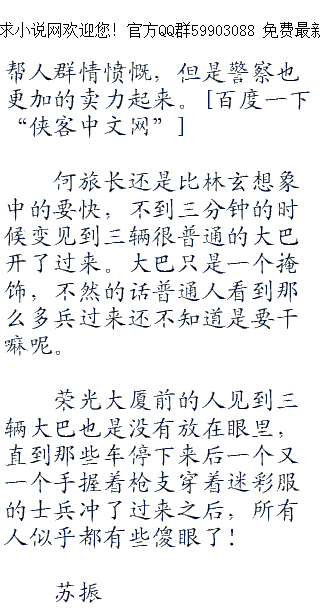 求小说网欢迎您！官方QQ群59903088 免费最新
帮人群情愤慨，但是警察也
更加的卖力起来。[百度一下
“侠客中文网”]
何旅长还是比林玄想象
中的要快，不到三分钟的时
候变见到三辆很普通的大巴
开了过来。大巴只是一个掩
饰，不然的话普通人看到那
么多兵过来还不知道是要干
嘛呢。
荣光大厦前的人见到三
辆大巴也是没有放在眼里，
直到那些车停下来后一个又
一个手握着枪支穿着迷彩服
的士兵冲了过来之后，所有
人似乎都有些傻眼了！
苏振